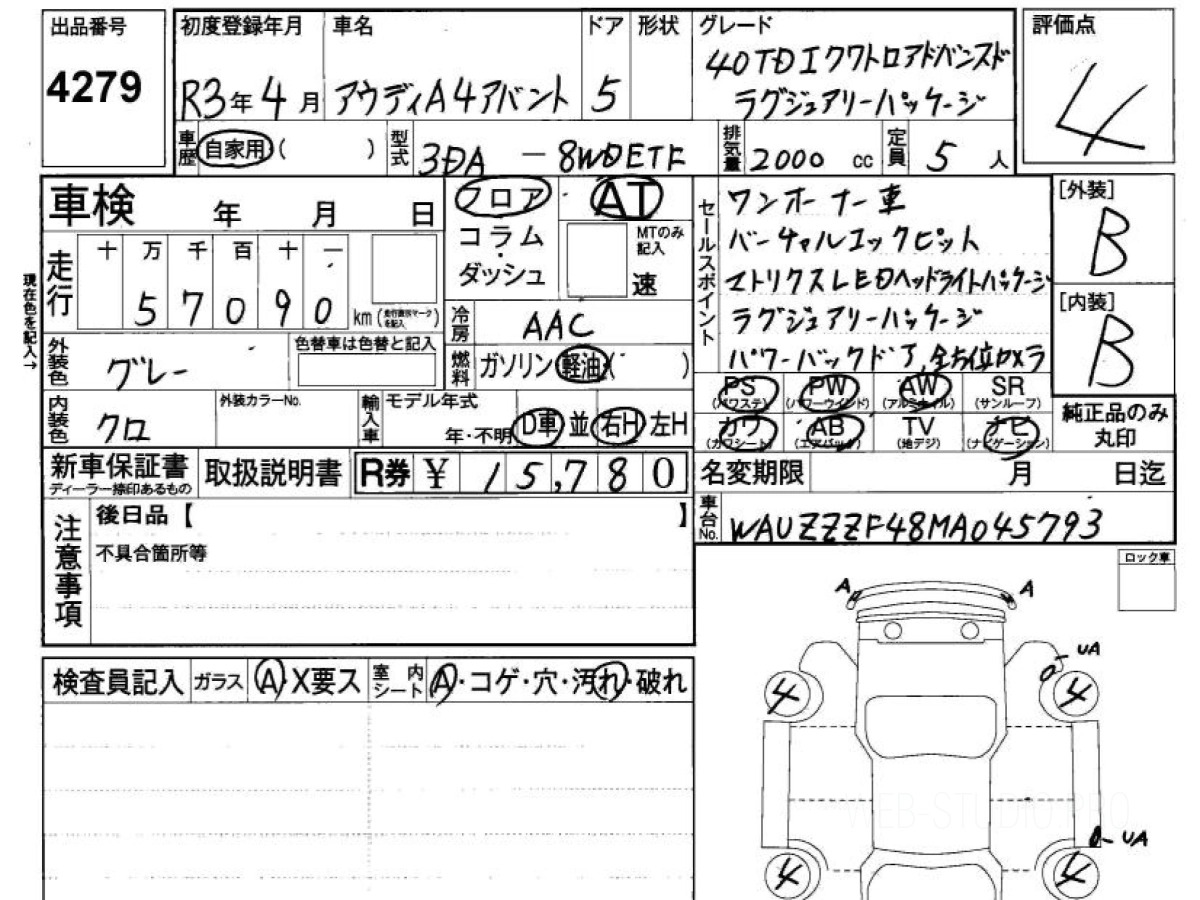 出品番号
4279
初度登録年月
R3年4月
車名
アウディA4アバント
ドア
5
形状
グレード
40TDIクワトロアドバンスド
ラグジュアリーパッケージ
評価点
4
車歴
自家用( )
型式
3DA - 8WDETF
排気量
2000 cc
定員
5人
車検 年 月 日
走行
十 万 千 百 十 一
5 7 0 9 0 km (走行表示マークを記入)
現在色を記入→
外装色
グレー
色替車は色替と記入
内装色
クロ
外装カラーNo.
輸入車
モデル年式
年・不明
D車 並 右H 左H
フロア
コラム
・
ダッシュ
AT
MTのみ記入
速
冷房
AAC
燃料
ガソリン 軽油( )
セールスポイント
ワンオーナー車
バーチャルコックピット
マトリクスLEDヘッドライトパッケージ
ラグジュアリーパッケージ
パワーバックドア,全方位カメラ
PS (パワステ)
PW (パワーウインド)
AW (アルミホイル)
SR (サンルーフ)
カワ (カワシート)
AB (エアバック)
TV (地デジ)
ナビ (ナビゲーション)
[外装]
B
[内装]
B
純正品のみ丸印
新車保証書
ディーラー捺印あるもの
取扱説明書
R券 ¥ 15,780
名変期限 月 日迄
車台No.
WAUZZZF48MA045793
注意事項
後日品【 】
不具合箇所等
ロック車
検査員記入
ガラス
A・X要ス
室内シート
A・コゲ・穴・汚れ・破れ
A
A
UA
4
4
UA
4
4
WEB-STUDIO.PRO